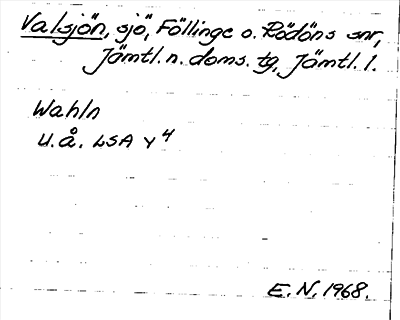 Valsjön, sjö, Föllinge o. Rödöns snr,
Jämtl. n. doms. tg, Jämtl. l.
Wahln
U.å. LSA Y 4
E. N. 1968.